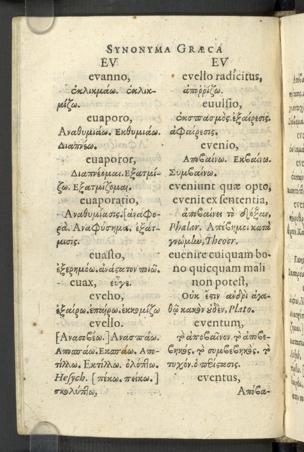 SYNONYMA GRÆCA
EV
evanno,
ἐκλικμάω. ἐκλικ-
μίζω.
euaporo,
Αναθυμιάω. Εκθυμιάω.
Διαπνέω.
euaporor,
Διαπνέομαι. Εξατμί-
ζω. Εξατμίζομαι.
euaporatio,
Αναθυμίασις. ἀναφο-
ρά. Αναφύσημα. ἐξατ-
μισις.
euasto,
ἐξερημόω. ἀνάστατον ποιῶ.
euax, εὖγε.
eveho,
ἐξαίρω. ἐπαίρω. ἐκκομίζω
evello.
Ανασπάω.
Αποσπάω. Εκσπάω. Απο-
τίλλω. Εκτίλλω.
Hesych. [πέκω. πείκω.]
σκολύπτω,
EV
evello radicitus,
ἀπορρίζω.
euulsio,
ἐκσπασμός. ἐξαίρεσις.
ἀφαίρεσις.
evenio,
Αποβαίνω. Εκβαίνω.
Συμβαίνω.
eveniunt quæ opto,
evenit ex sententia,
ἀποβαίνει
Phalar. κατὰ
γνώμην, Theocr.
euenire cuiquam bo-
no quicquam mali
non potest,
Οὐκ ἔστιν ἀνδρὶ ἀγα-
θῷ κακὸν οὐδὲν, Plato.
eventum,
τὸ ἀποβαῖνον. τὸ ἀποβε-
βηκός. τὸ συμβεβηκός. τὸ
τυχόν.
eventus,
Απόβα-